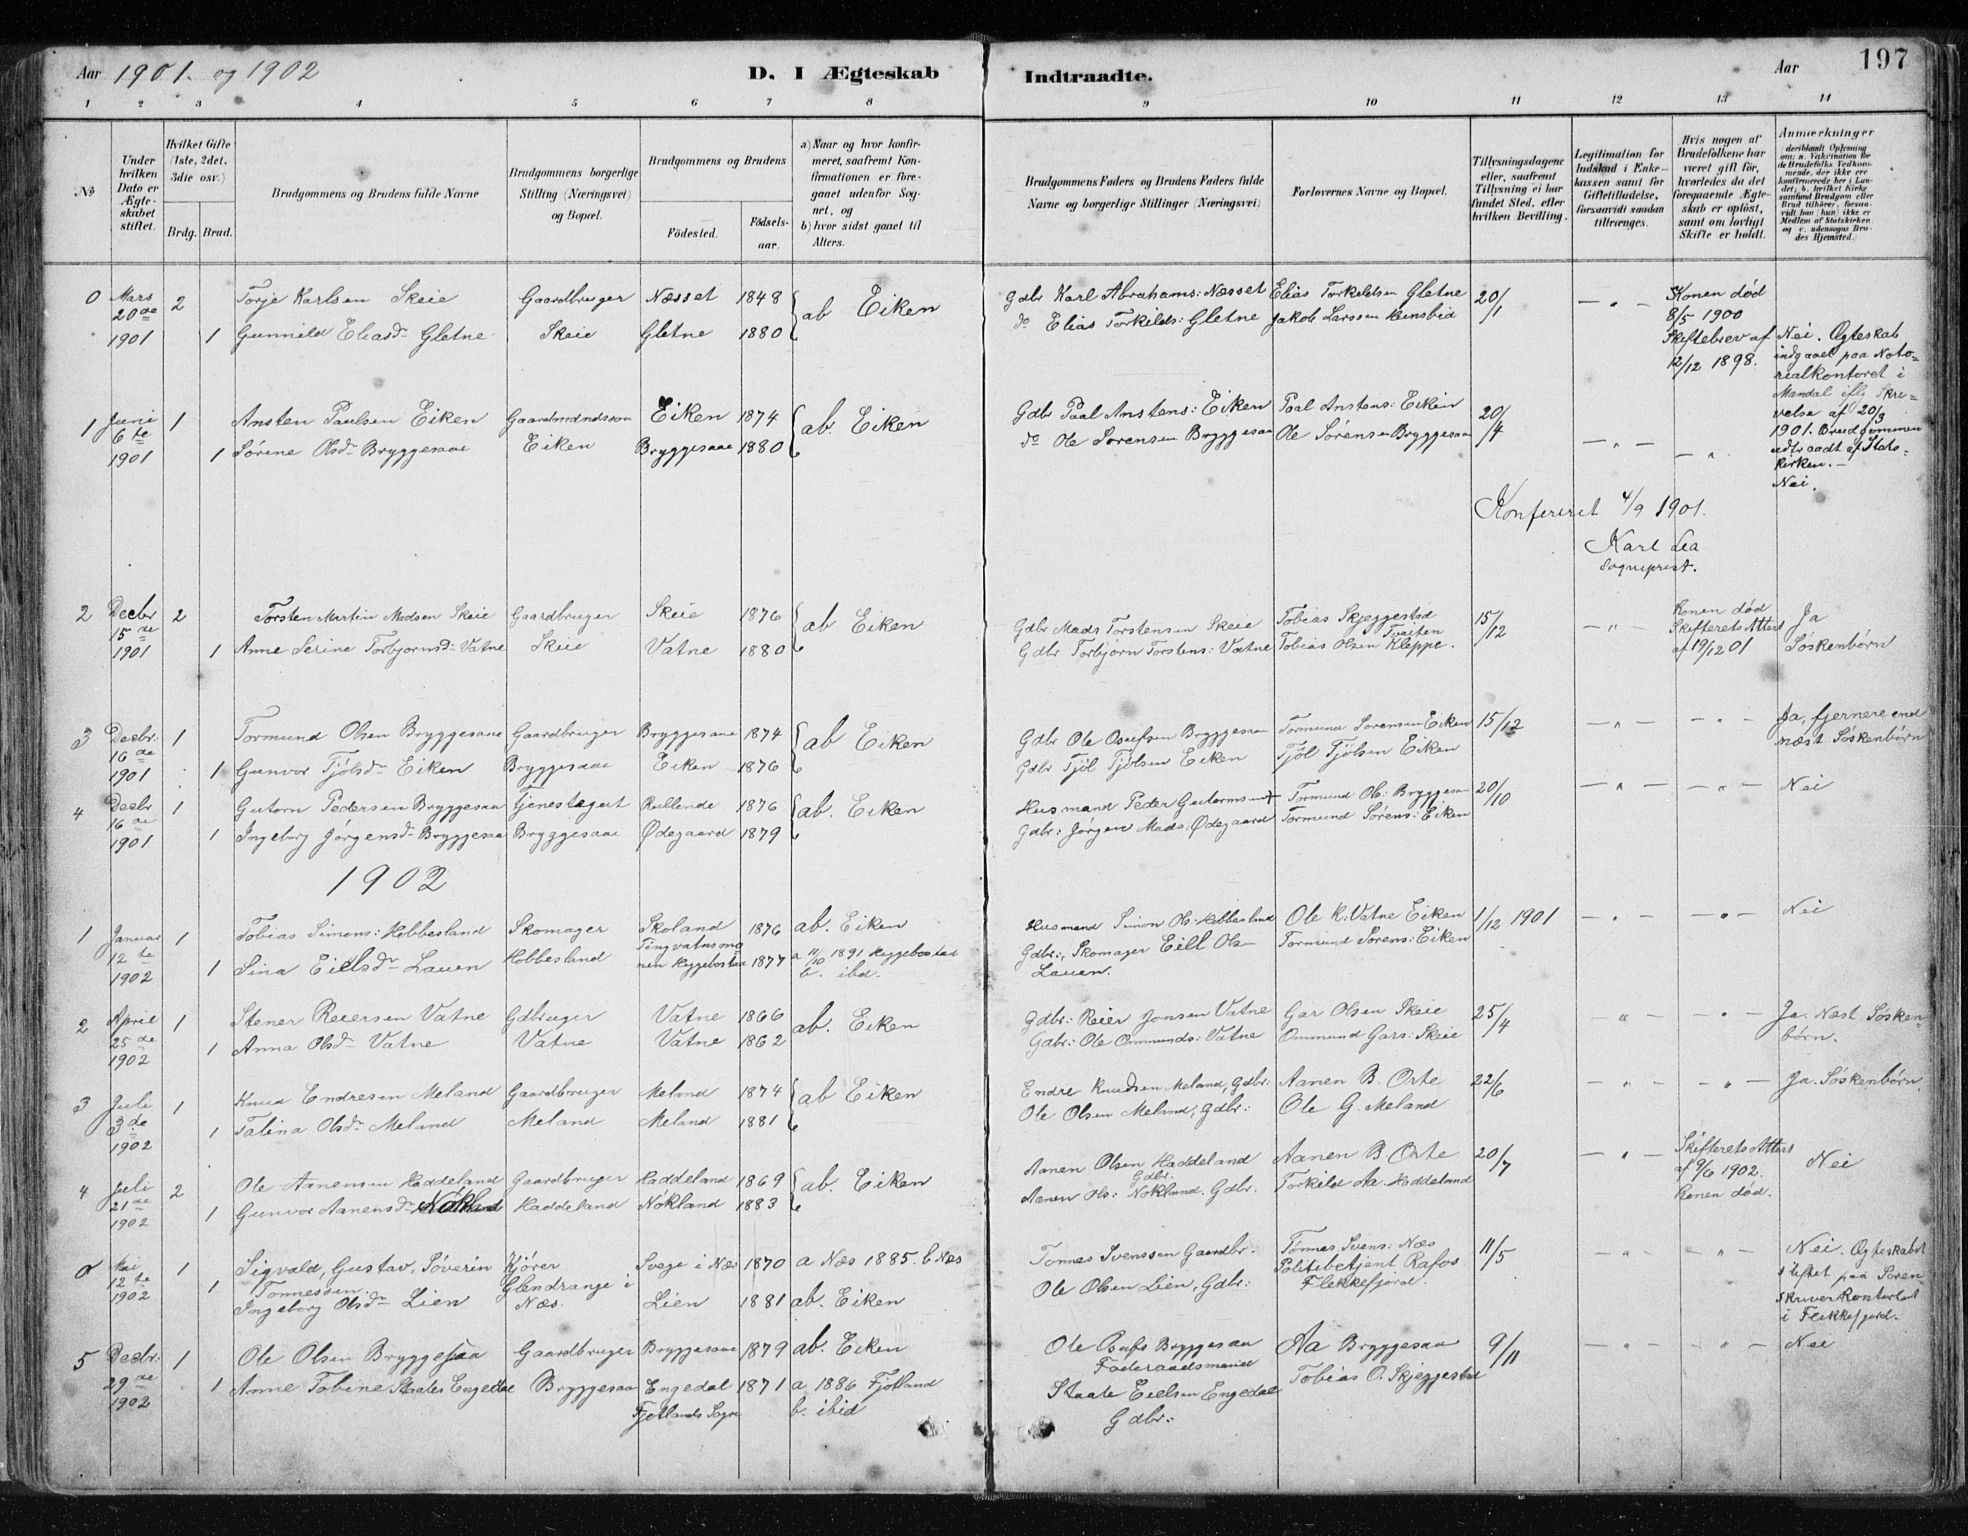 Aar 1901. og 1902 D. I Ægteskab Indtraadte. Aar 197
1 2 3 4 5 6 7 8 9 10 11 12 13 14
№
Under hvilken Dato er Ægteskabet stiftet.
Hvilket Gifte (1ste, 2det, 3die osv.)
Brdg. Brud.
Brudgommens og Brudens fulde Navne
Brudgommens borgerlige Stilling (Næringsvei) og Bopæl.
Brudgommens og Brudens
Födested. Födselsaar.
a) Naar og hvor konfirmeret, saafremt Konfirmationen er foregaaet udenfor Sognet, og
b) hvor sidst gaaet til Alters.
Brudgommens Faders og Brudens Faders fulde Navne og borgerlige Stillinger (Næringsvei)
Forlovernes Navne og Bopæl.
Tillysningsdagene eller, saafremt Tillysning ei har fundet Sted, efter hvilken Bevilling.
Legitimation for Indskud i Enkekassen samt for Giftetilladelse, forsaavidt saadan tiltrænges.
Hvis nogen af Brudefolkene har været gift før, hvorledes da det foregaaende Ægteskab er oplöst, samt om lovligt Skifte er holdt.
Anmærkninger
0 Mars 20de 1901 2 Torje Karlsen Skeie Gaardbruger Næsset 1848 ab Eiken Gdbr Karl Abrahams: Næsset Elias Torkildsen Gletne 20/1 — " — Konen död 8/5 1900 Skiftebrev af 12/12 1898.
1 Gunnild Eliasdr Gletne Skeie Gletne 1880 do Elias Torkilds: Gletne Jakob Larssen Hunsbid
Nei. Ægteskab indgaaet paa Notorialkontoret i Mandal iflg Skrivelse af 20/3 1901. Brudgommen udtraadt af Statskirken. —
1 Juni 6te 1901 1 Ansten Paulsen Eiken Gaardmandssøn Eiken 1874 ab. Eiken Gdbr Paal Anstens: Eiken Paal Anstens: Eiken 20/4 — " — — " Nei.
1 Sørine Olsdr Bryggesaae Eiken Bryggesaae 1880 do Ole Sørensen Bryggesaa Ole Sørensen Bryggesaa
Konfereret 4/9 1901.
Karl Lea
Sogneprest.
2 Decbr 15de 1901 2 Torsten Martin Madsen Skeie Gaardbruger Skeie 1876 ab Eiken Gdbr Mads Torstensen Skeie Tobias Skjeggestad 15/12 — " — Konen död Skifterets Attest af 19/12 01 Ja Söskenbörn
1 Anne Serine Torbjornsdr Vatne Skeie Vatne 1880 Gdbr Torbjørn Torstens: Vatne Tobias Olsen Kleppe.
3 Decbr: 16de 1901 1 Tormund Olsen Bryggesaae Gaardbruger Bryggesaae 1874 ab Eiken Gdbr Ole Osufsen Bryggesaa Tormund Sorensen Eiken 15/12 — " — — " — Ja, fjernere end næst Söskenbörn
1 Gunvor Tjölsdr Eiken Bryggesaae Eiken 1876 Gdbr Tjöl Tjölsen Eiken Tjöl Tjölsen Eiken
4 Decbr 16de 1901 1 Gutorn Pedersen Bryggesaa Tjenestegut Rullende 1876 ab. Eiken Husmand Peder Gutorms Tormund Ols: Bryggesaa 20/10 — " — — " — Nei
1 Ingeborg Jörgensdr Bryggesaa Bryggesaae Ødegaard 1879 Gdbr: Jörgen Mads: Ødegaard Tormund Sörens: Eiken
1902
1 Januar 12te 1902 1 Tobias Simons: Hobbesland Skomager Skoland 1876 ab. Eiken Husmand Simon Ols: Hobbesland Ole K. Vatne Eiken 1/12 1901 — " — — " — Nei
1 Sina Eilsdr Lauen Hobbesland Tingvatnsmonen Heggebostad 1877 a 11/10 1891 Heggebostad b. ibd. Gdbr:, Skomager Eill Ols Lauen. Tormund Sorens: Eiken
2 April 25de 1902 1 Stener Reiersen Vatne Gdbruger Vatne 1866 ab. Eiken Gdbr: Reier Jonsen Vatne Gar Olsen Skeie 25/4 — " — — " — Ja. Næst Söskenbörn.
1 Anna Olsdr Vatne Vatne Vatne 1862 Gdbr: Ole Ommunds: Vatne Ommund Gars: Skeie
3 Juli 3de 1902 1 Knud Endresen Meland Gaardbruger Meland 1874 ab Eiken Endre Knudsen Meland, Gdbr: Aanen B. Orte 22/6 — " — — " — Ja. Söskenbörn.
1 Talina Olsdr Meland Meland Meland 1881 Ole Olsen Meland, Gdbr: Ole G. Meland
4 Juli 21de 1902 2 Ole Aanensen Haddeland Gaardbruger Haddeland 1869 ab. Eiken Aanen Olsen Haddeland Gdbr. Aanen B Orte 20/7 — " — Skifterets Attest af 9/6 1902. Konen död. Nei
1 Gunvor Aanensdr Nökland Haddeland Nökland 1883 Aanen Ols: Nokland. Gdbr. Torkild Aa. Haddeland
0 Mai 12te 1902 1 Sigvald, Gustav, Söverin Tonnessen. Kjörer Svege i Næs 1870 a Næs 1885. b Næs Tonnes Svenssen Gaardbr: Tønnes Svens: Næs 11/5 — " — — " — Nei. Ægteskabet stiftet paa Sorenskriverkontoret i Flekkefjord.
1 Ingeborg Olsdr Lien Glendrange i Næs. Lien 1881 ab. Eiken Ole Olsen Lien, Gdbr: Politibetjent Rafos Flekkefjord.
5 Decbr: 29de 1902 1 Ole Olsen Bryggesaa Gaardbruger Bryggesaa 1879 ab. Eiken Ole Osufs Bryggesaa Foderaadsmand Aa Bryggesaa 9/11 — " — — " — Nei
1 Anne Tobine Staales Engedal Bryggesaa Engedal Fjotlands Sogn 1871 a 1886 Fjotland b. ibid Staale Eielsen Engedal Gdbr: Tobias O. Skjeggestad